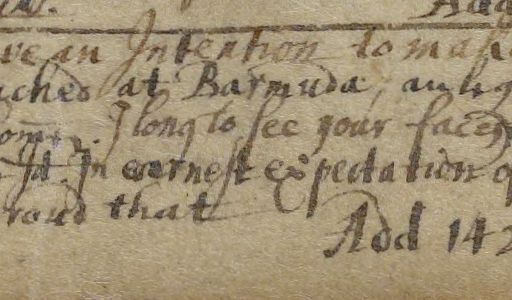 Add
ve an Intention to mak
ches at Barmuda, an
Rom: I long to see your faces
Id. In earnest expectation o
roud that
Add 142